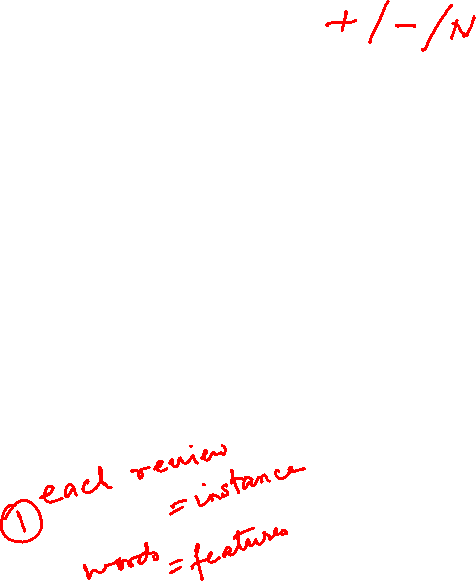 +/-/N
① each review
= instance
words = features